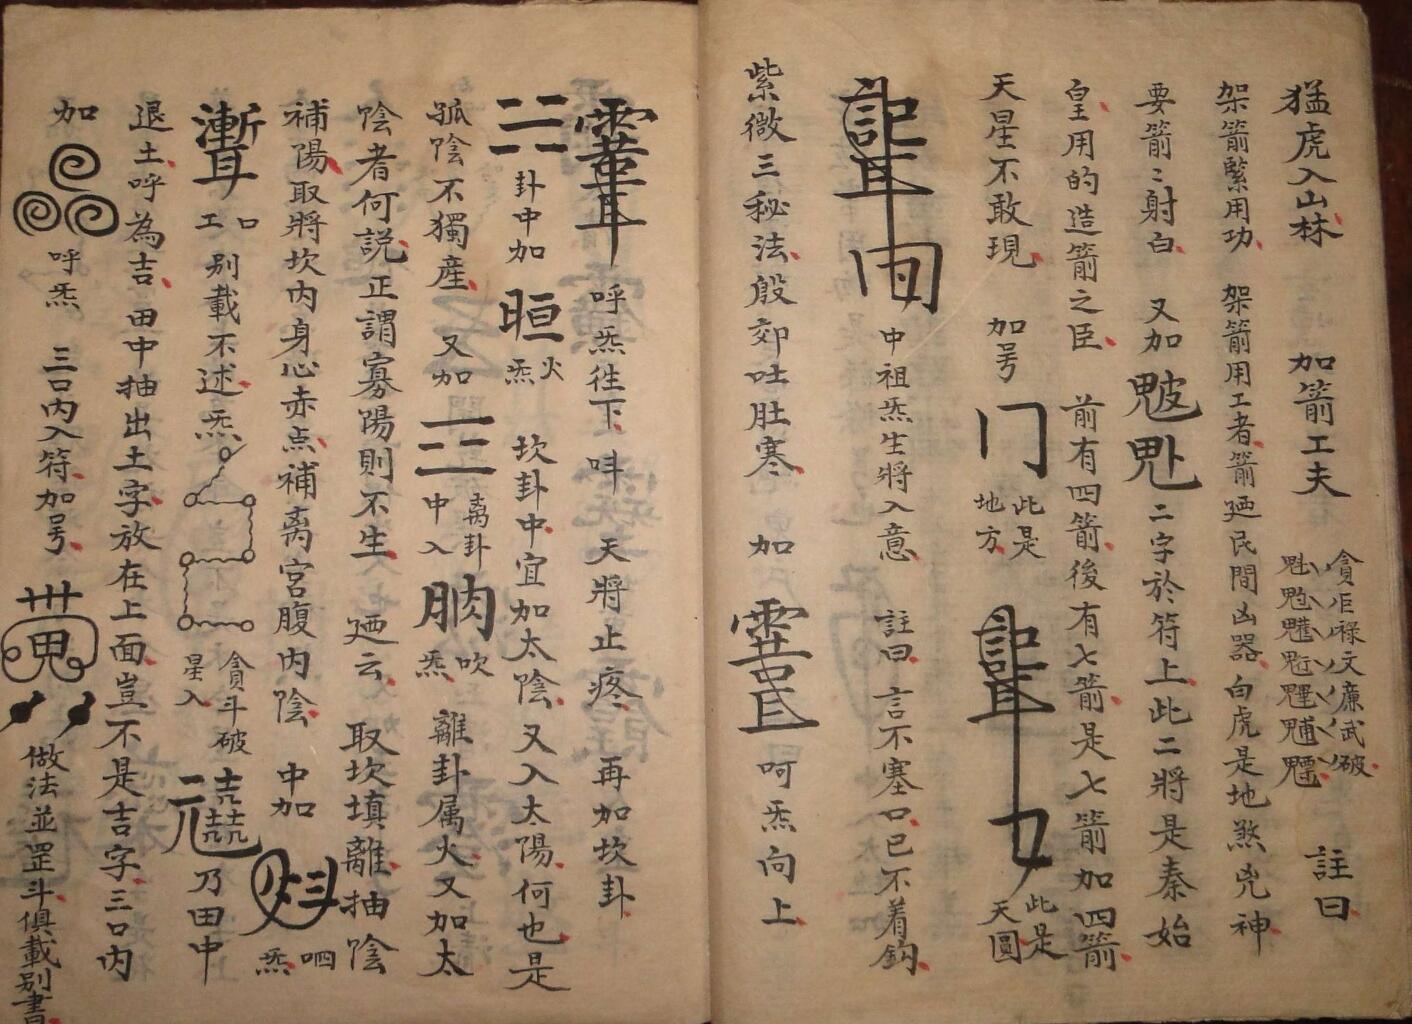 猛虎入山林 加箭工夫 貪巨祿文廉武破 註曰
架箭緊用功 架箭用工者箭廼民間凶器白虎是地煞兇神
要箭〻射白 又加 二字於符上此二將是秦始
皇用的造箭之臣 前有四箭後有七箭是七箭加四箭
天星不敢現 加号 此是地方 此是天圓
中祖炁生將入意 註曰 言不塞口己不着鈎
紫微三秘法殷郊吐肚寒 加 呵炁向上
呼炁往下 天將止疼 再加坎卦
卦中加 火炁 坎卦中宜加太陰又入太陽何也是
孤陰不獨產 又加 離卦中入 吹炁 離卦属火又加太
陰者何説正謂寡陽則不生 廼云 取坎填離抽陰
補陽取將坎內身心赤点補离宮腹內陰 中加 呬炁
口工 别載不述炁 貪斗破星入 乃田中
退土呼為吉田中抽出土字放在上面豈不是吉字三口內
加 呼炁 三口內入符加号 做法並罡斗俱載别書